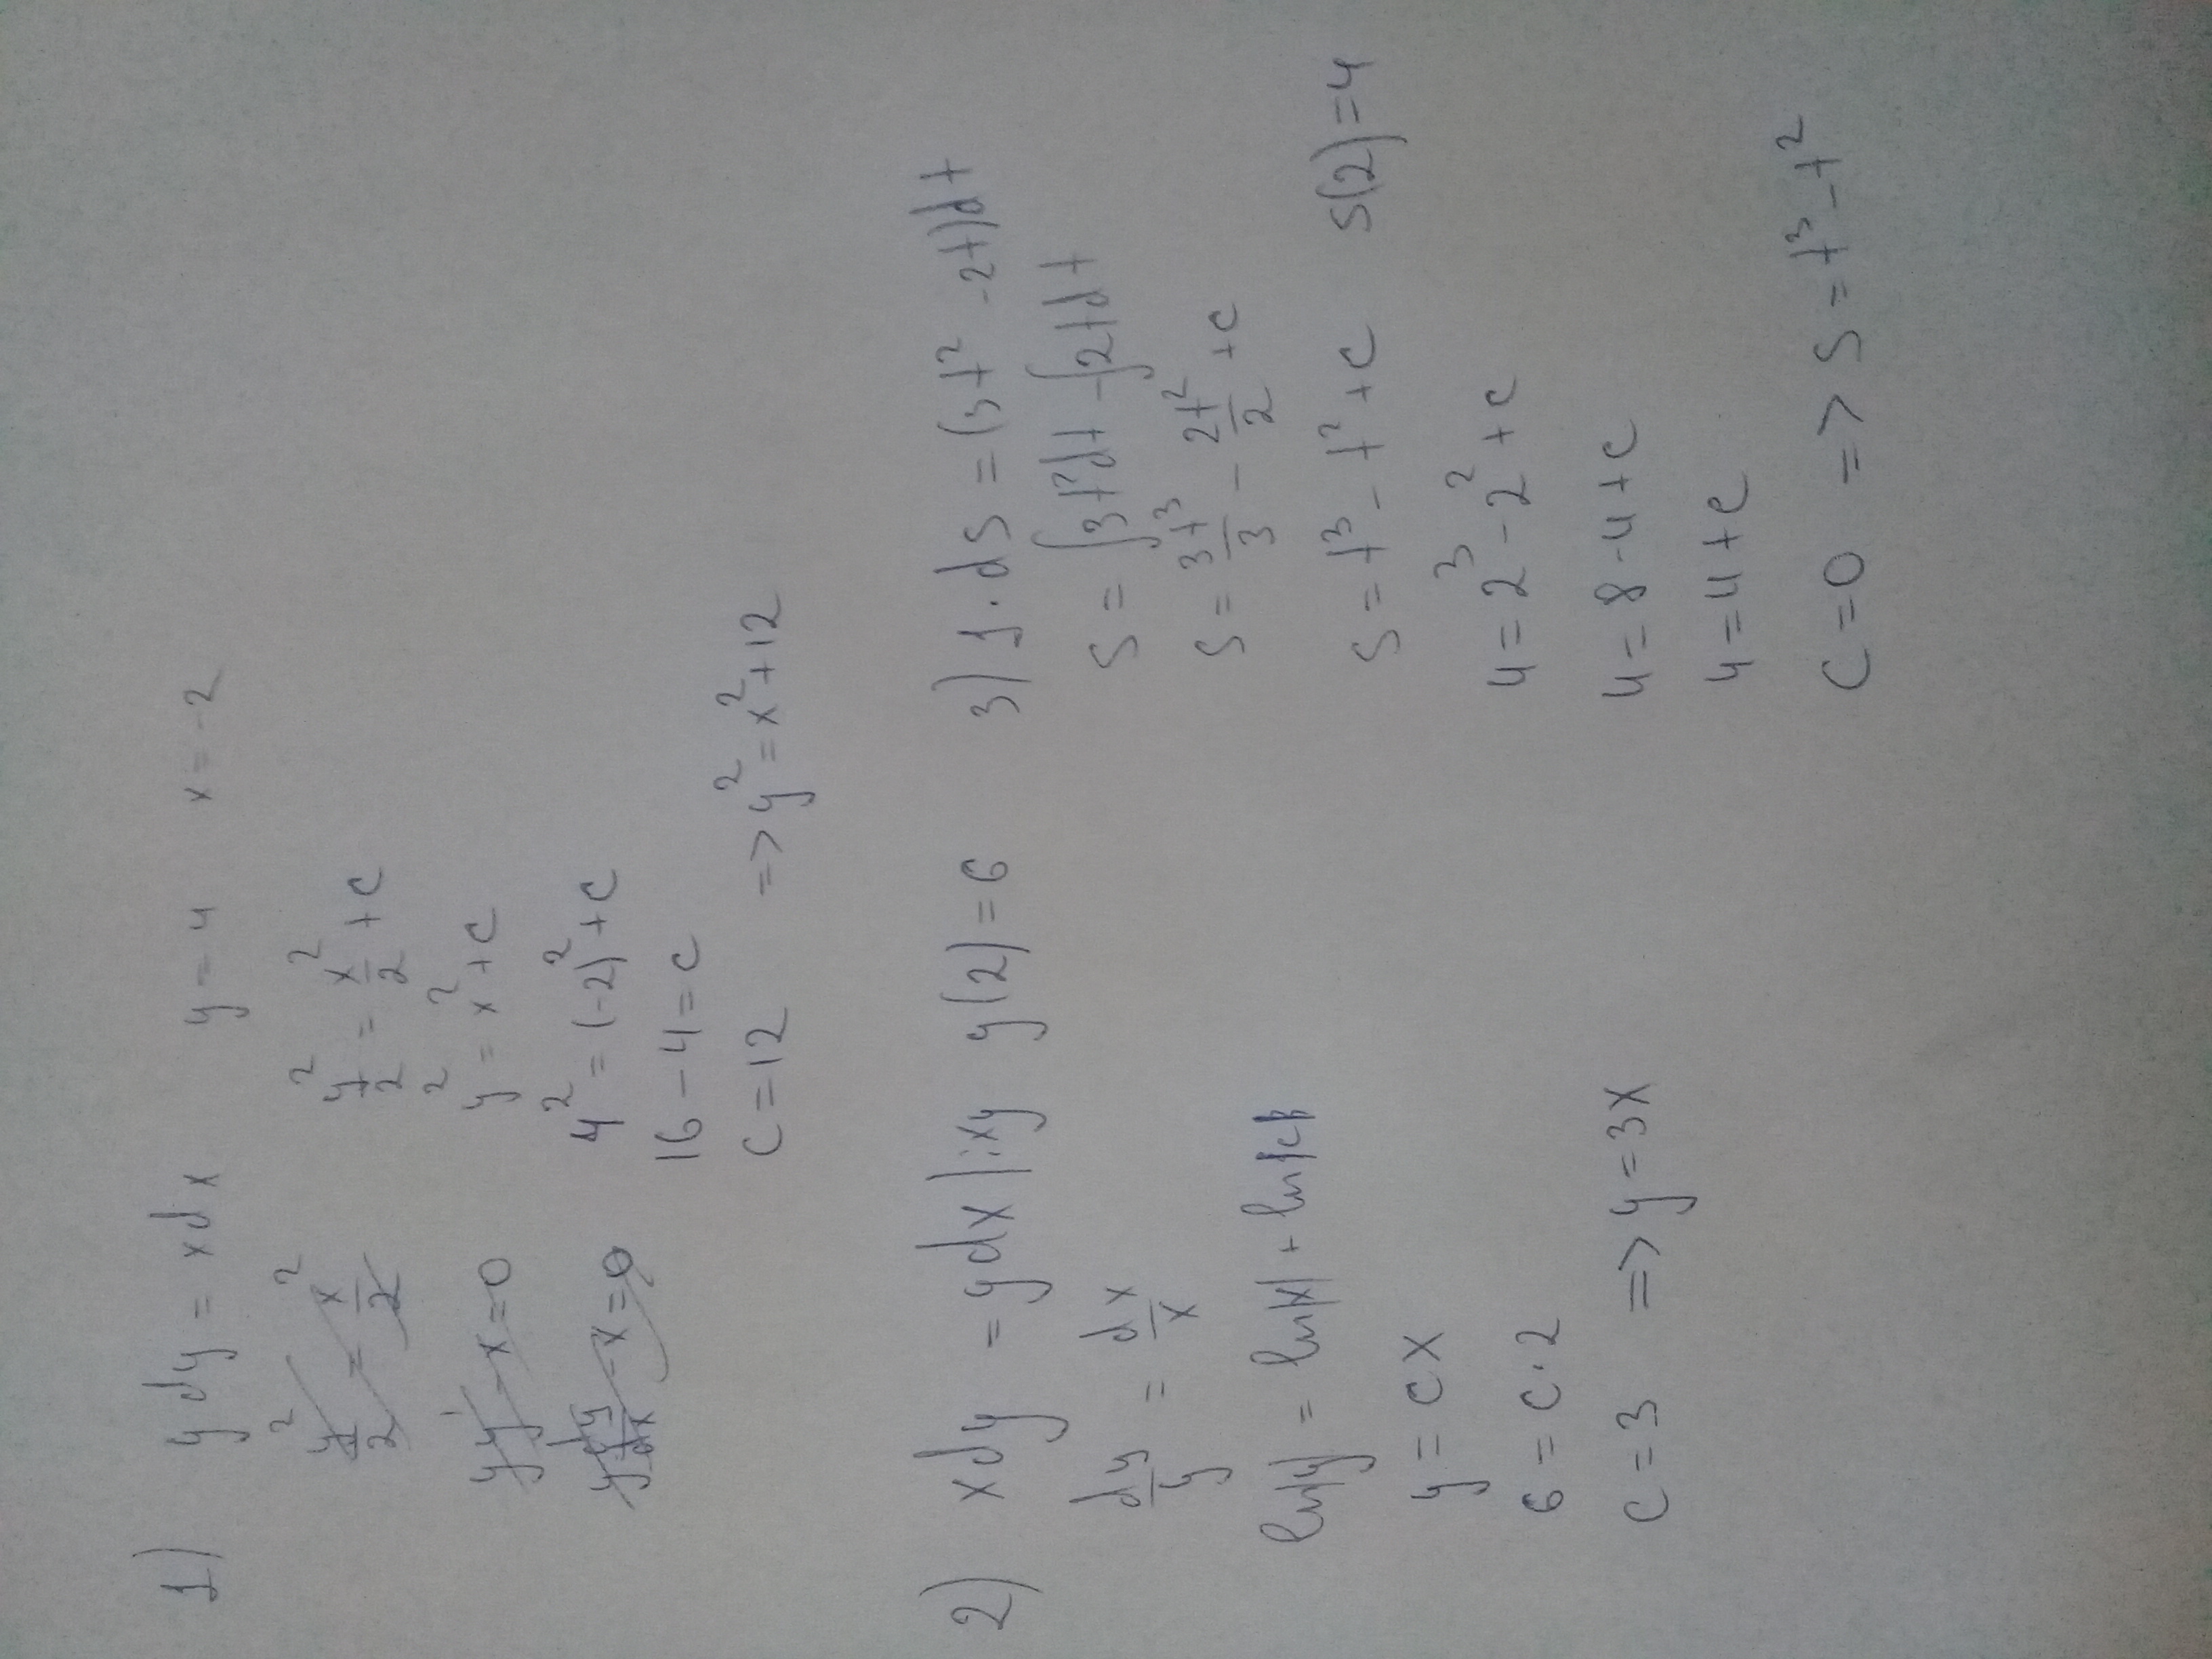 1) y dy = x dx y = 4 x = -2
y²/2 = x²/2
y y' - x = 0
y dy/dx - x = 0
y²/2 = x²/2 + c
y² = x² + c
4² = (-2)² + c
16 - 4 = c
c = 12 => y² = x² + 12
2) x dy = y dx |:xy y(2) = 6
dy/y = dx/x
ln|y| = ln|x| + ln|c|
y = cx
6 = c·2
c = 3 => y = 3x
3) 1·ds = (3t² - 2t)dt
s = ∫3t²dt - ∫2tdt
s = 3t³/3 - 2t²/2 + c
s = t³ - t² + c s(2) = 4
4 = 2³ - 2² + c
4 = 8 - 4 + c
4 = 4 + c
c = 0 => s = t³ - t²